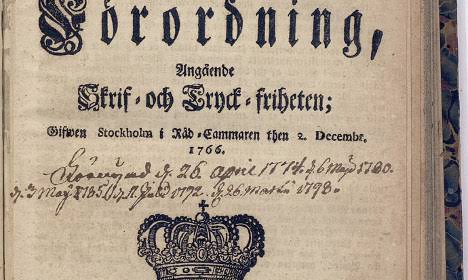 Förordning,
Angående
Skrif- och Tryck-friheten;
Gifwen Stockholm i Råd-Cammaren then 2. Decembr.
1766.
d. 26 april 1774. d. 6 Maji 1780.
d. 3 Maj 1785. d. 11 Julii 1792. d. 26 Martii 1798.